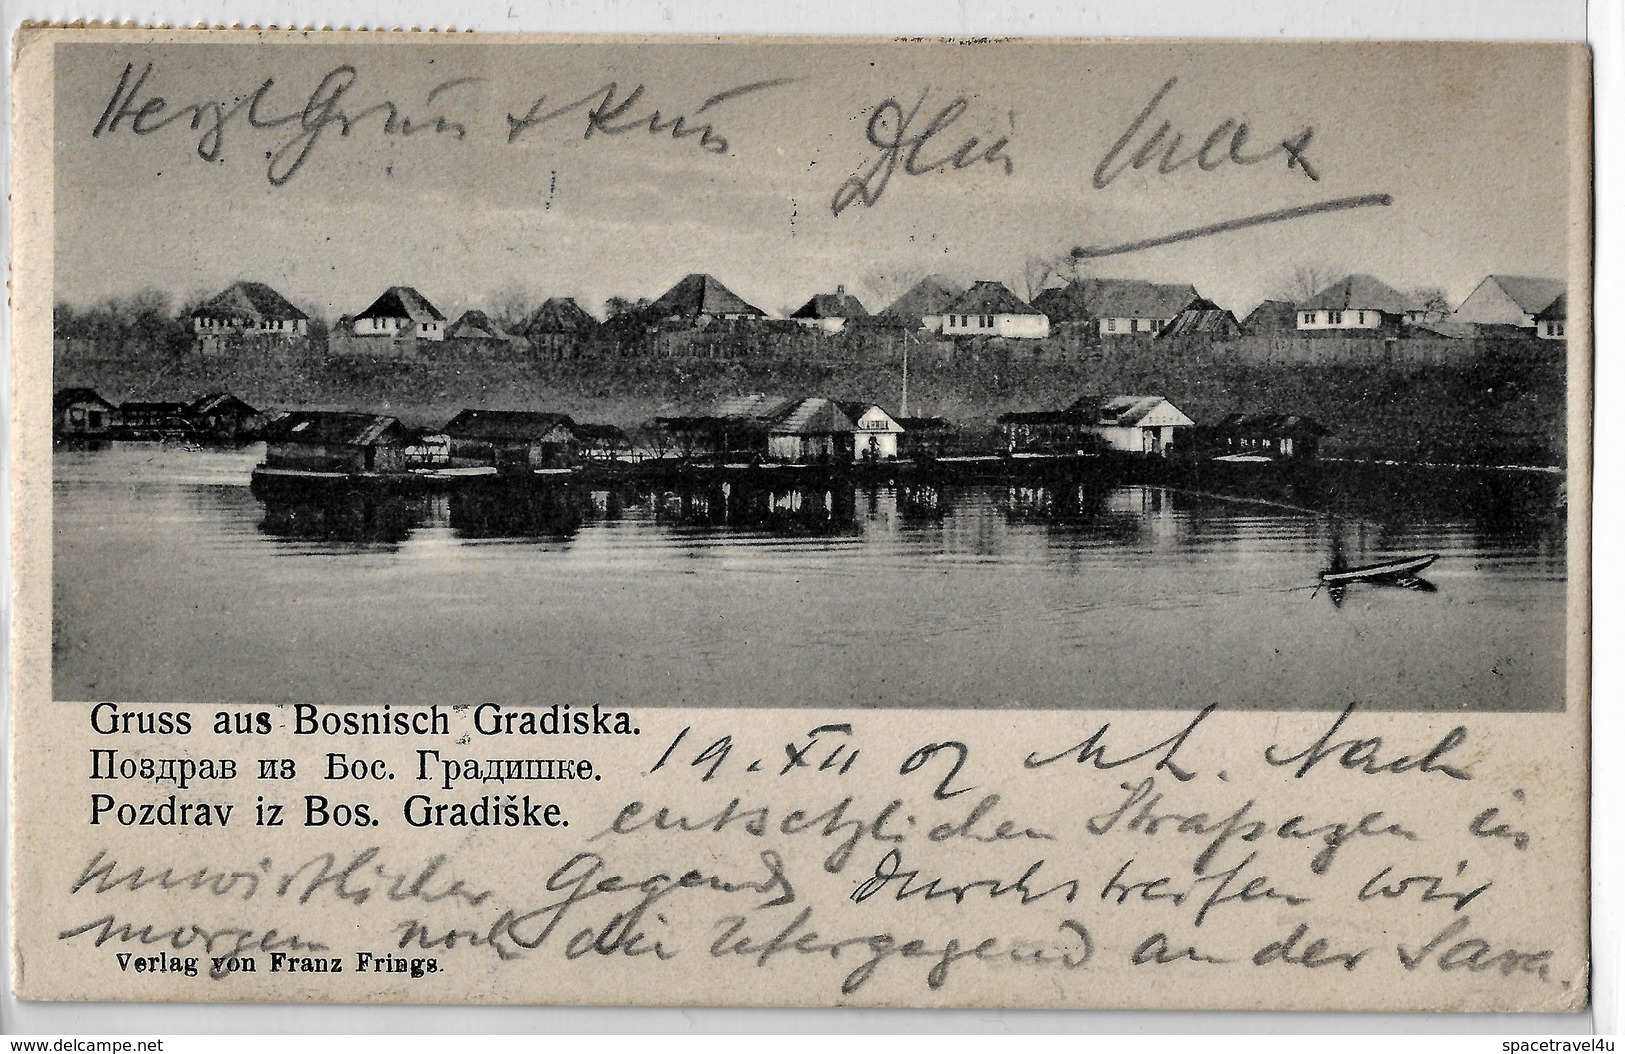 Herzl Gruss + Kuss Dein Max
Gruss aus Bosnisch Gradiska.
Поздрав из Бос. Градишке.
Pozdrav iz Bos. Gradiške.
19. XII 02 Nach
entsetzlichen Strapazen in
unwirtlicher Gegend durchstreifen wir
morgen noch die Ufergegend an der Sava.
Verlag von Franz Frings.
www.delcampe.net
spacetravel4u